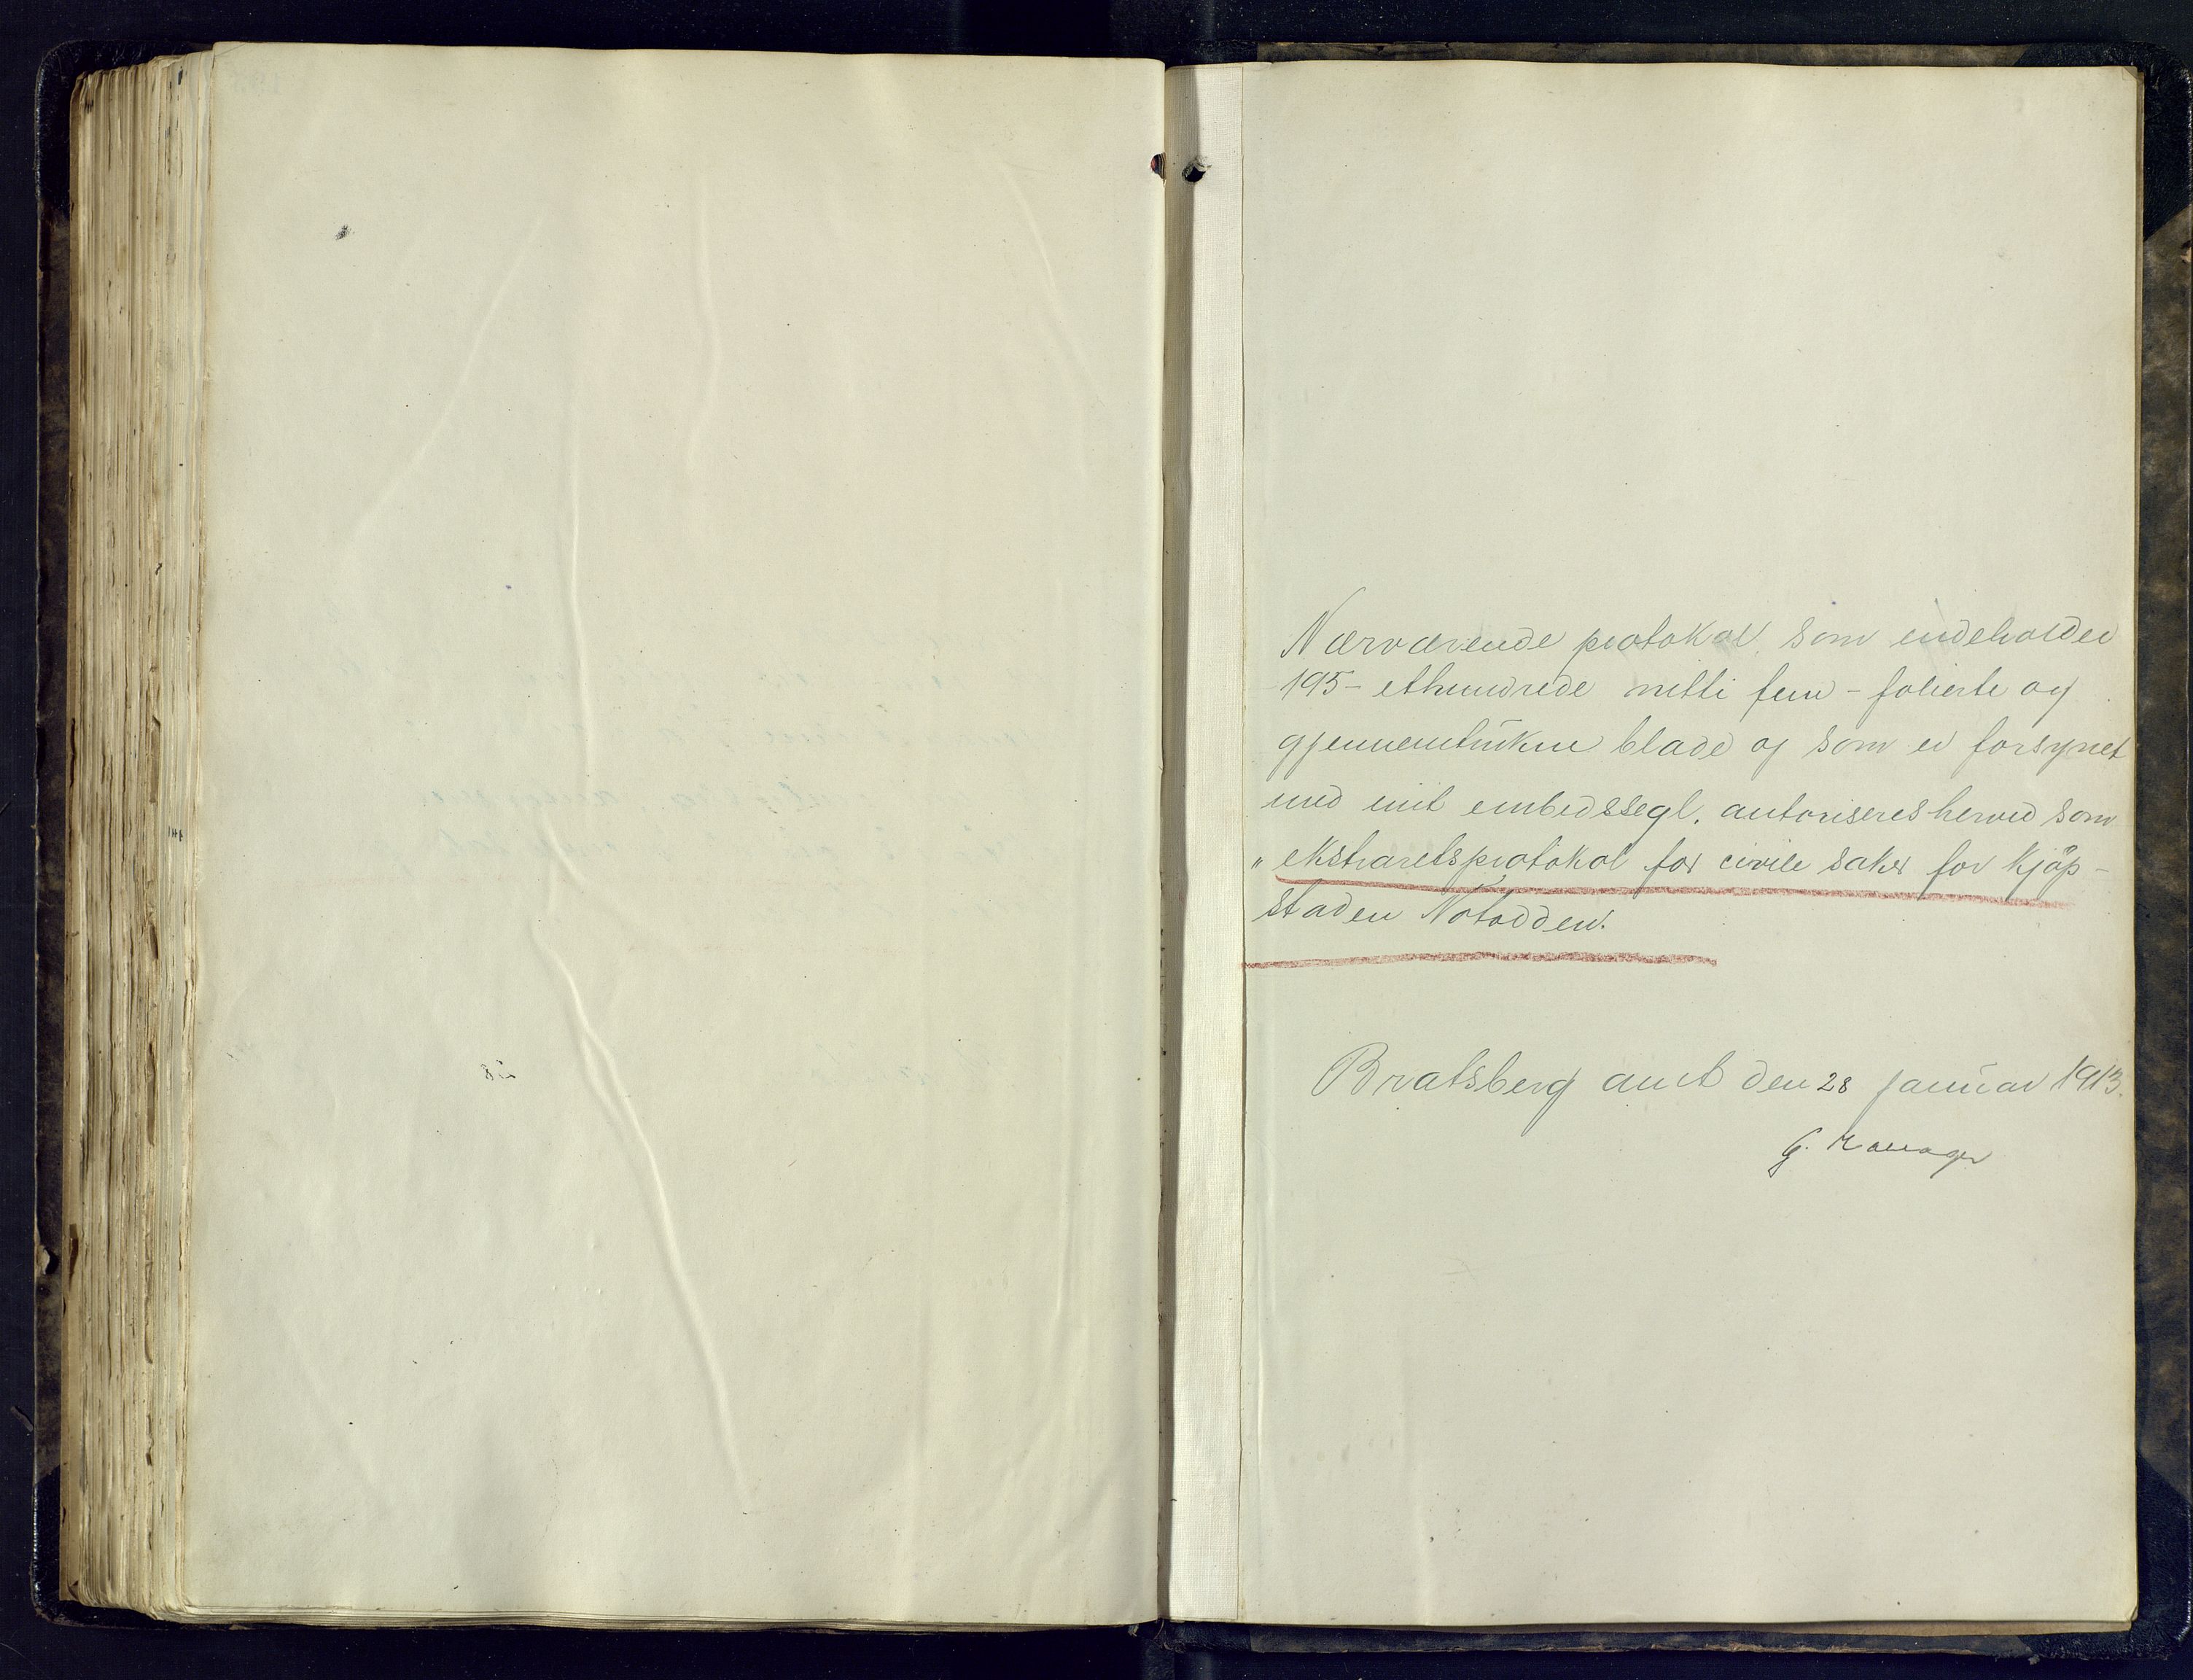 Nærværende protokol som indeholder
195 - ethundrede nitti fem - folierte og
gjennemtrukne blade og som er forsynet
med mit embedssegl. autoriseres herved som
„ ekstraretsprotokol for civile saker for kjøp-
staden Notodden.
Bratsberg amt den 28 januar 1913.
G.